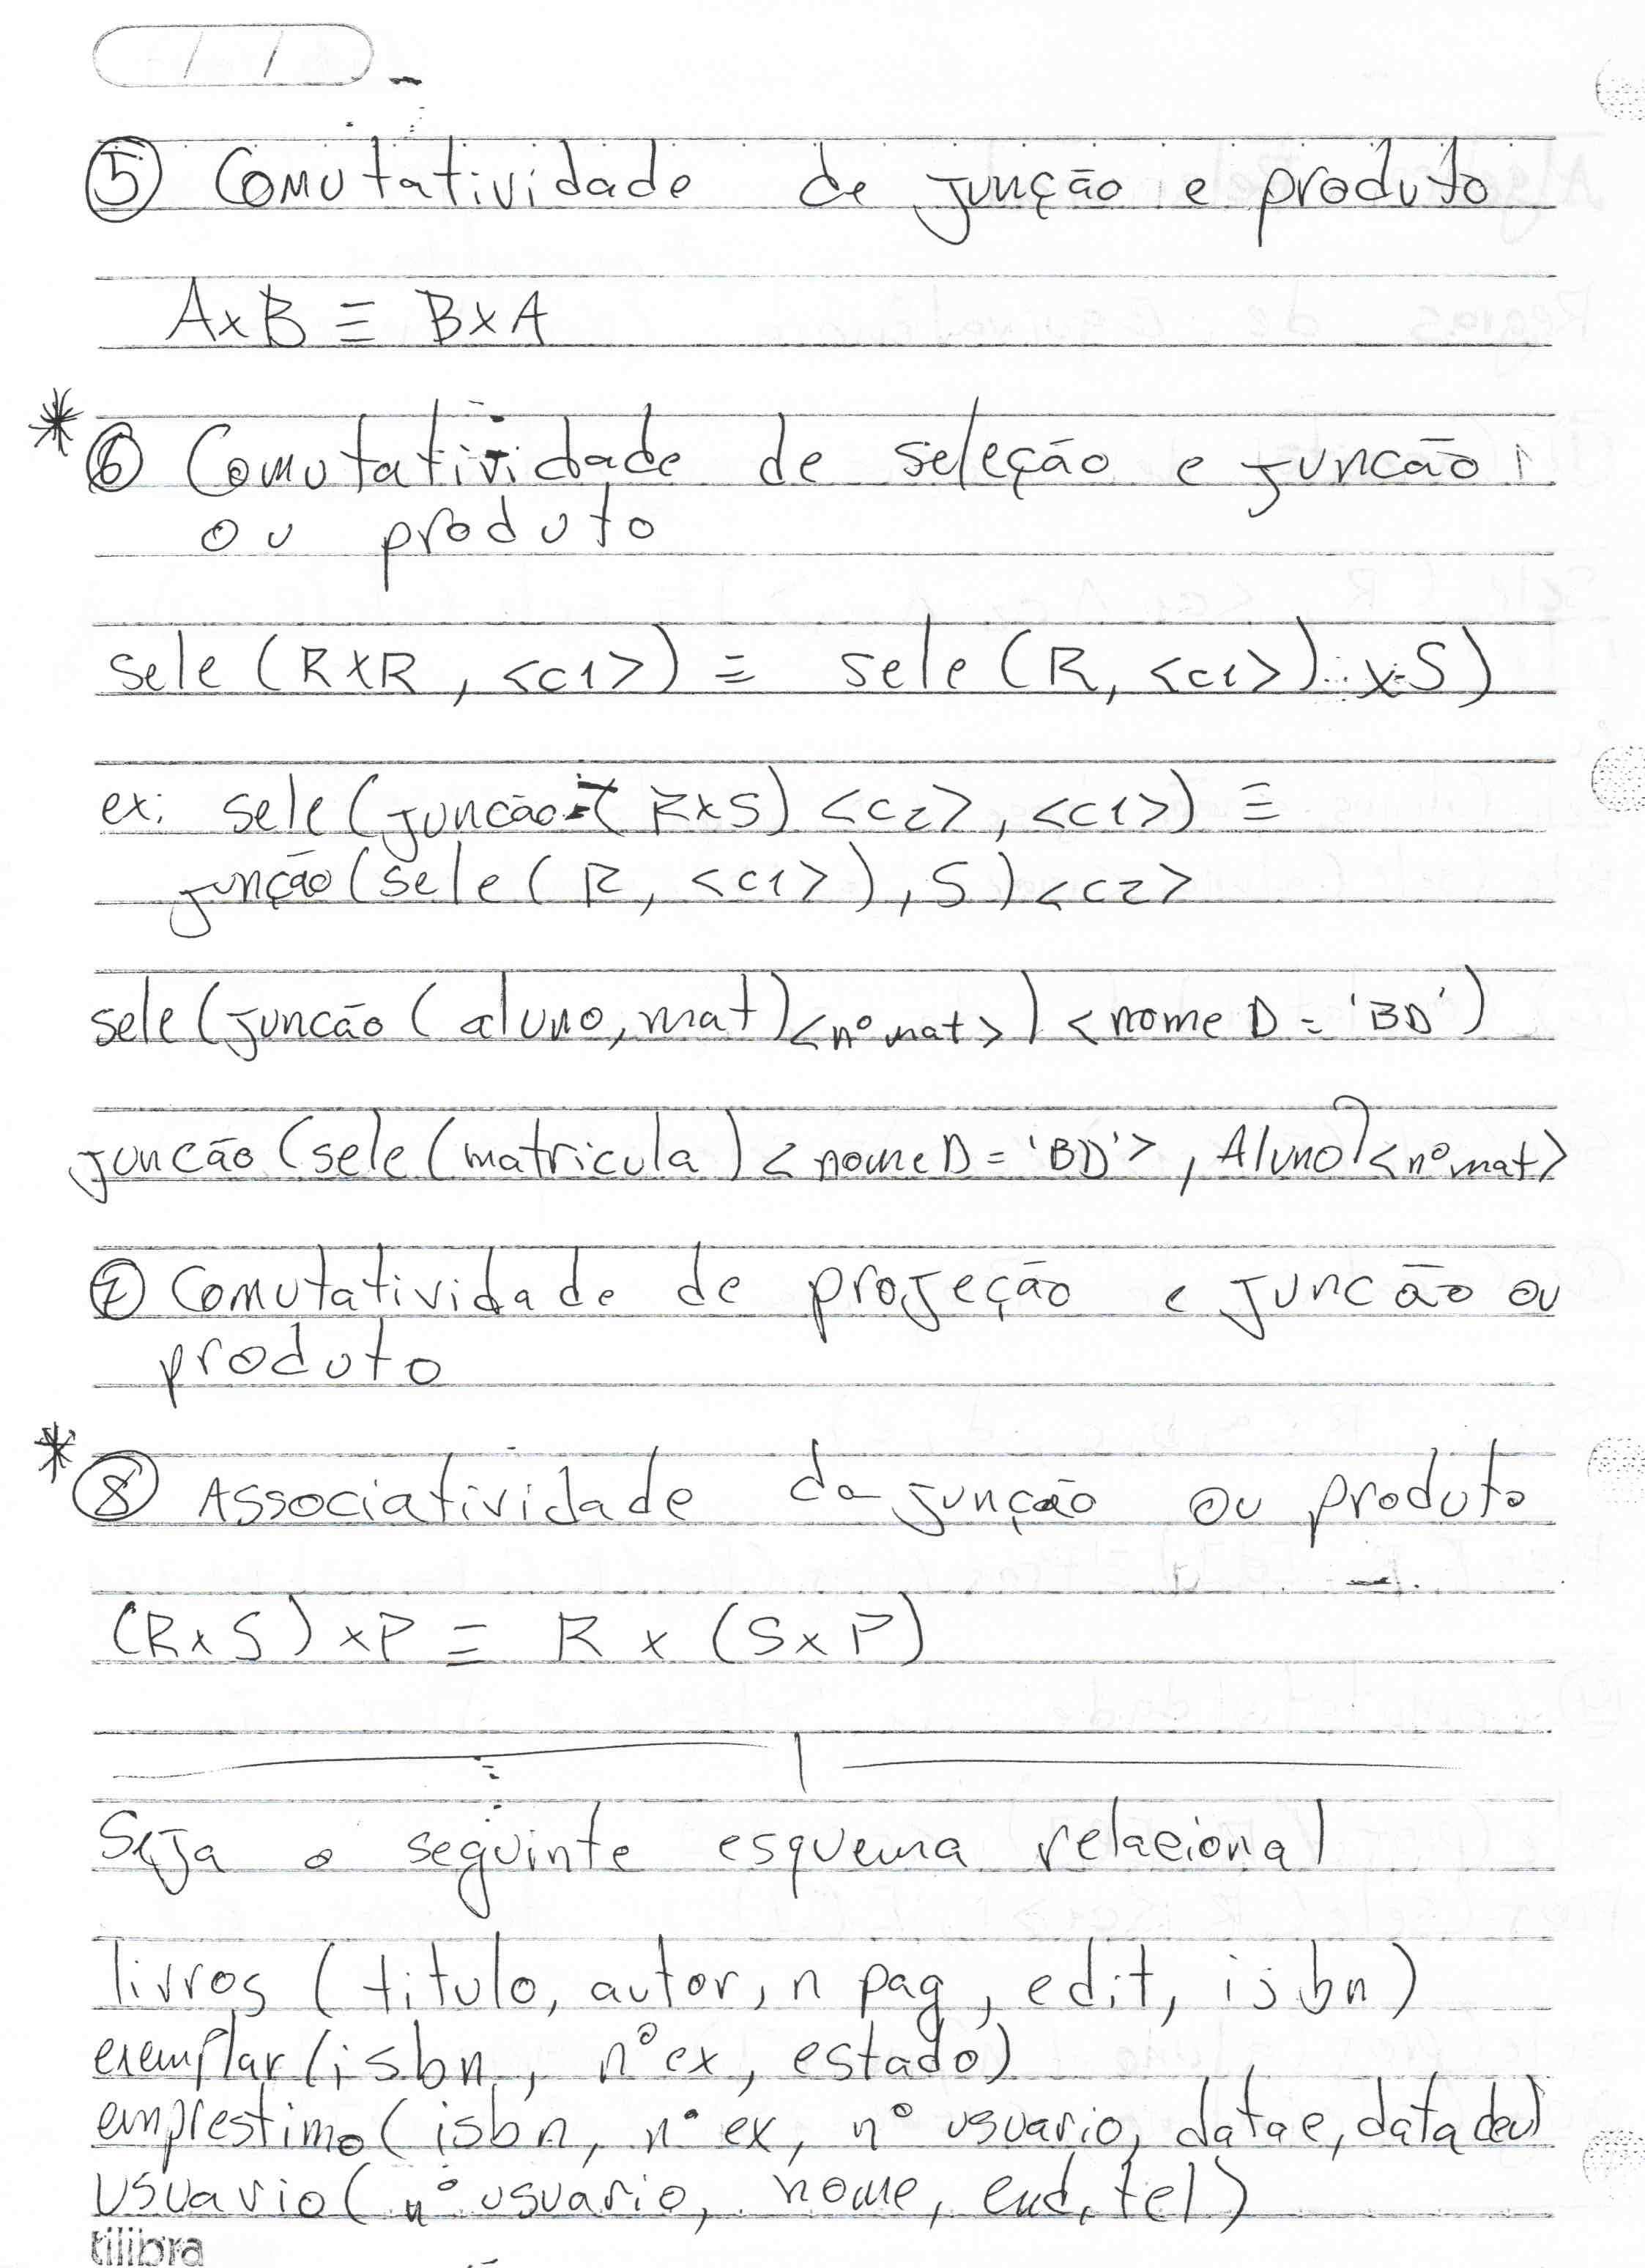 / /
⑤ Comutatividade de junção e produto
AxB ≡ BxA
* ⑥ Comutatividade de seleção e juncão
ou produto
sele (RXR, <c1>) ≡ sele (R, <c1>) x S)
ex: sele (juncão ( RxS) <c2>, <c1>) ≡
junção (sele ( R, <c1>), S) <c2>
sele (juncão ( aluno, mat) <nº mat>) <nome D = 'BD')
juncão (sele (matricula) < nome D = 'BD'>, Aluno) <nº mat>
⑦ Comutatividade de projeção e juncão ou
produto
* ⑧ Associatividade da junção ou produto
(RxS) xP ≡ R x (SxP)
Seja o seguinte esquema relacional
livros (titulo, autor, n pag, edit, isbn)
exemplar (isbn, nº ex, estado)
emprestimo (isbn, nº ex, nº usuario, datae, data dev)
usuario (nº usuario, nome, end, tel)
tilibra